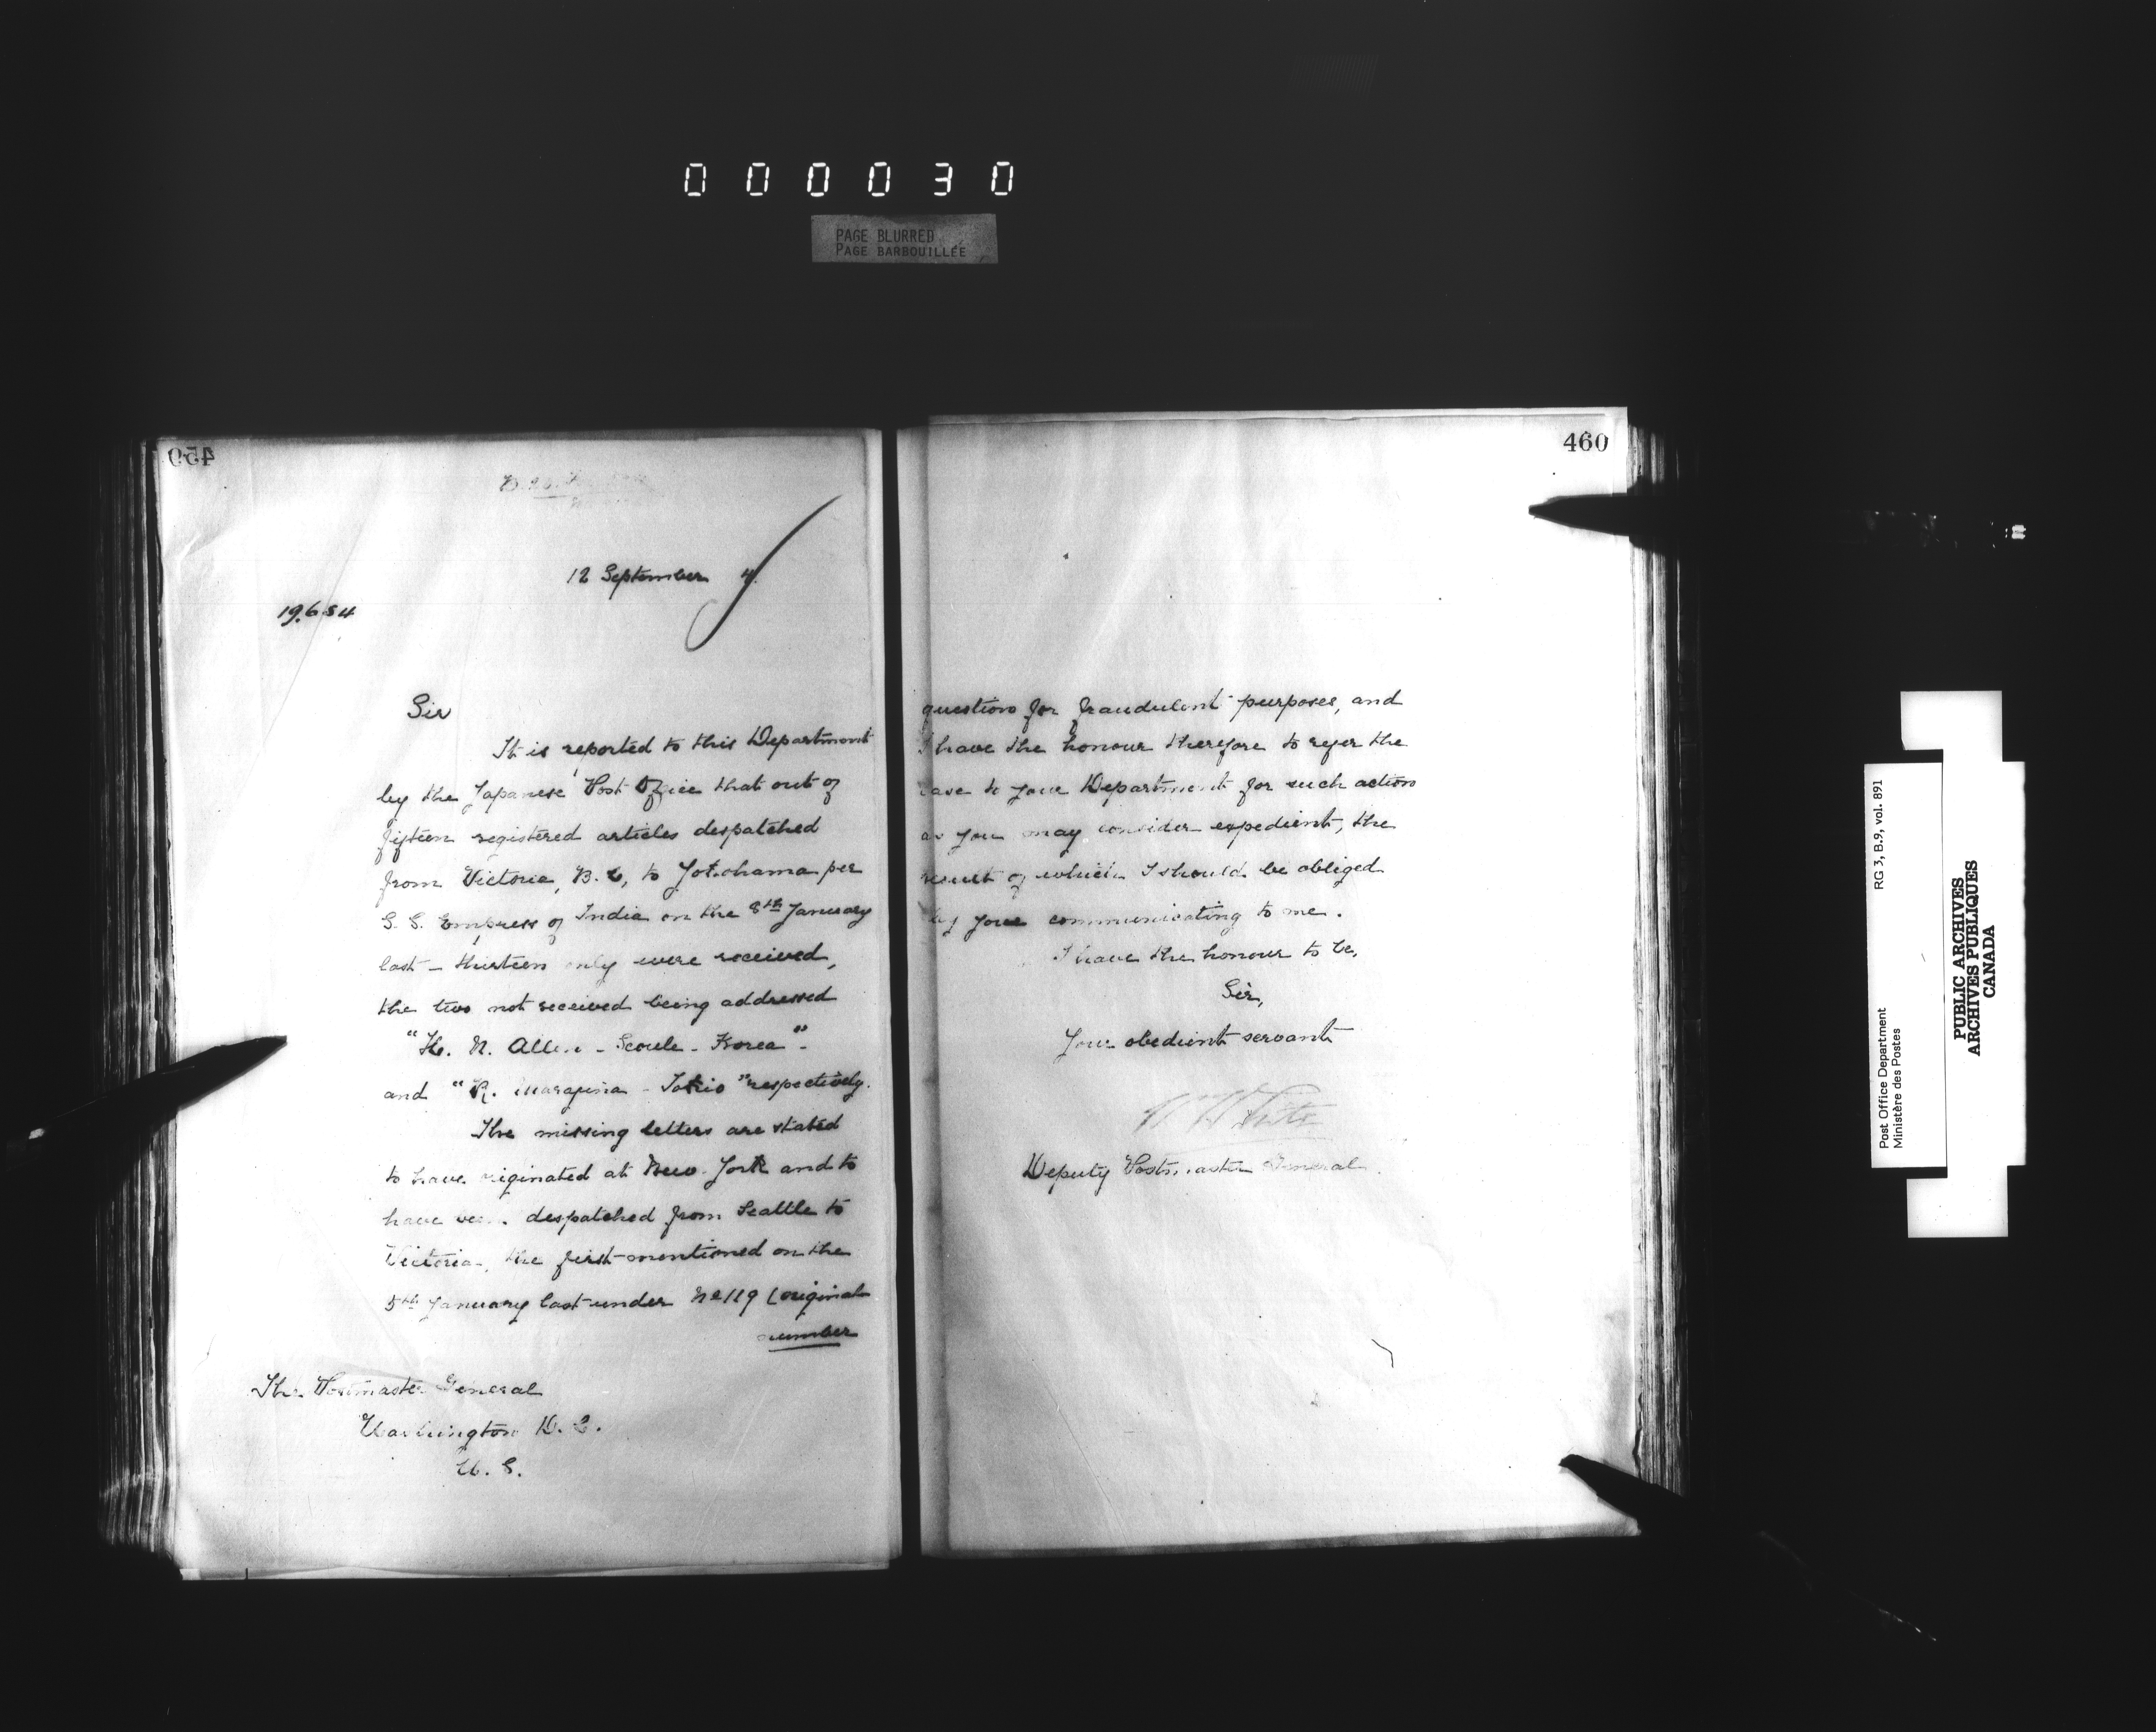 000030
PAGE BLURRED
PAGE BARBOUILLÉE
459
12 September 4.
19.654
Sir
It is reported to this Department
by the Japanese Post Office that out of
fifteen registered articles despatched
from Victoria, B.C, to Yokohama per
S. S. Empress of India on the 8th January
last - thirteen only were received,
the two not received being addressed
"H. N. Allen - Seoule - Korea" -
and "R. - Tokio" respectively.
The missing letters are stated
to have originated at New York and to
have been despatched from Seattle to
Victoria, the first-mentioned on the
5th January last under No 119 (original
number
The Postmaster General
Washington D. C.
U. S.
460
question for fraudulent purposes, and
I have the honour therefore to refer the
case to your Department for such action
as you may consider expedient, the
result of which I should be obliged
by your communicating to me.
I have the honour to be,
Sir,
Your obedient servant
W White
Deputy Postmaster General.
Post Office Department
Ministère des Postes
RG 3, B.9, vol. 891
PUBLIC ARCHIVES
ARCHIVES PUBLIQUES
CANADA